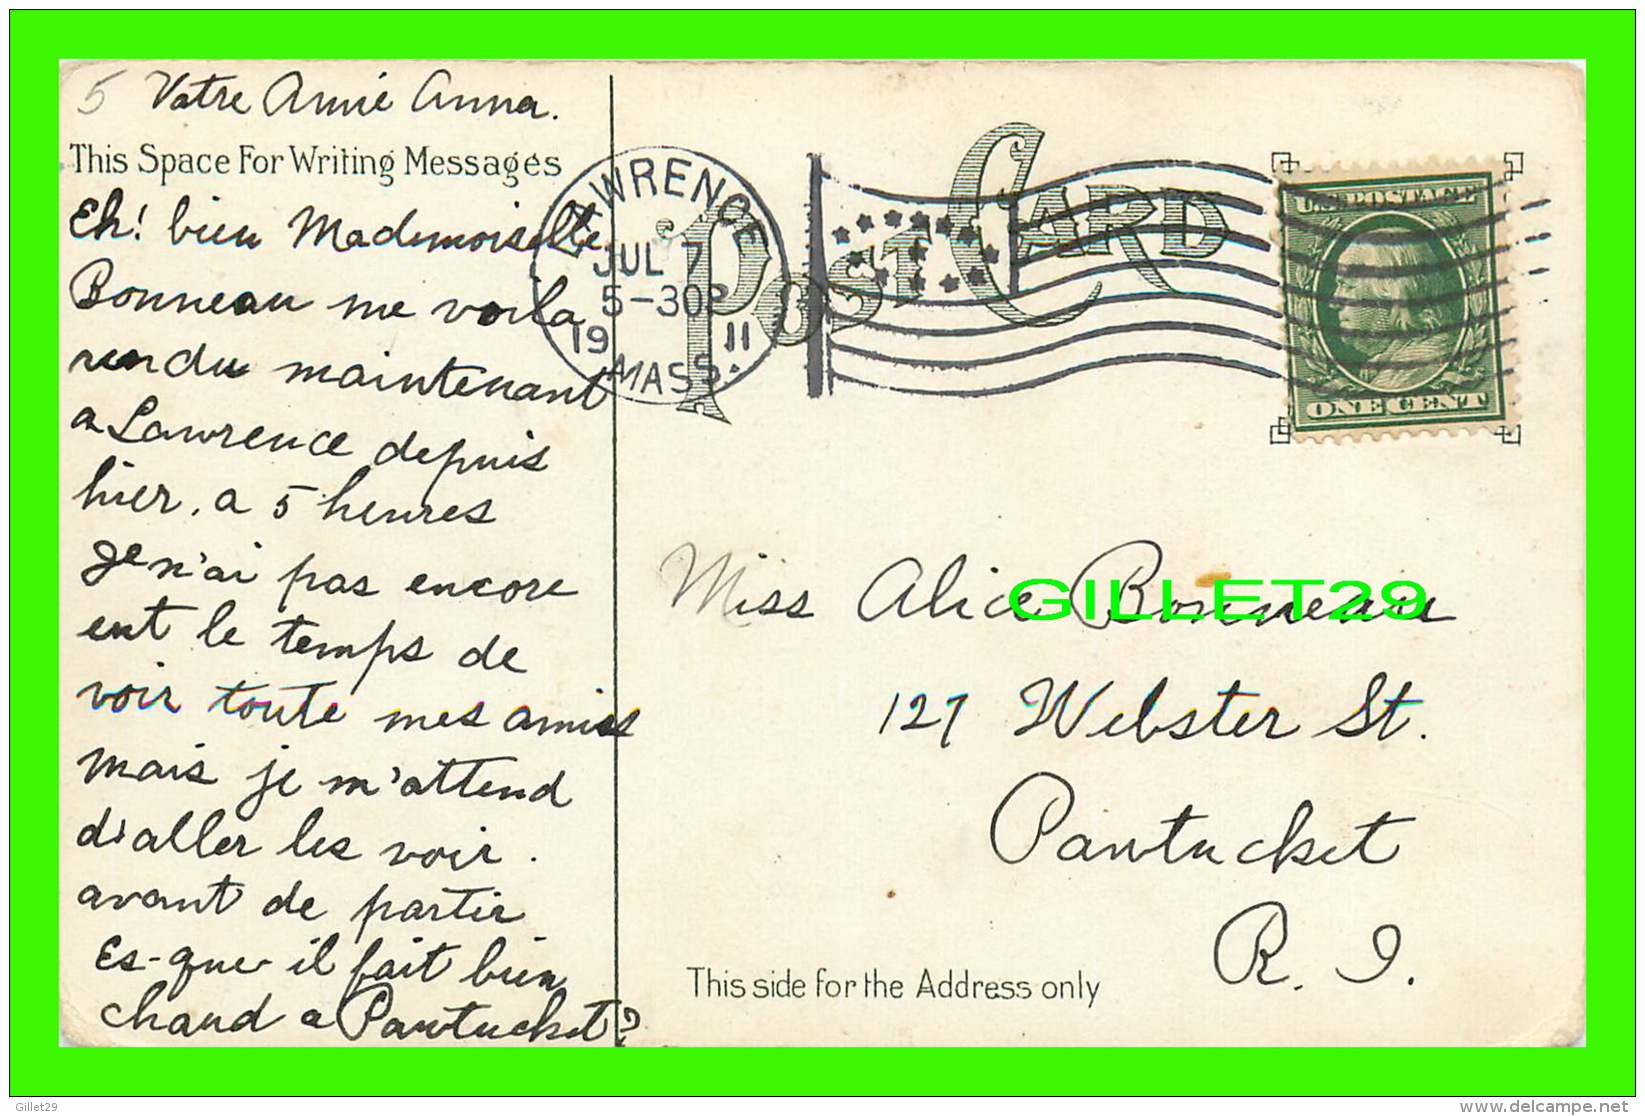 5 Votre Amie Anna.
This Space For Writing Messages
Eh! bien Mademoiselle
Bonneau me voila
rendu maintenant
a Lawrence depuis
hier. a 5 heures
Je n'ai pas encore
eut le temps de
voir toute mes amies
mais je m'attend
d'aller les voir.
avant de partir
Es-que il fait bien
chaud a Pawtucket?
LAWRENCE
JUL 7
5-30P
19 11
MASS.
POST CARD
U.S. POSTAGE
ONE CENT
Miss Alice Bonneau
GILLET29
127 Webster St.
Pawtucket
R. I.
This side for the Address only
Gillet29
www.delcampe.net